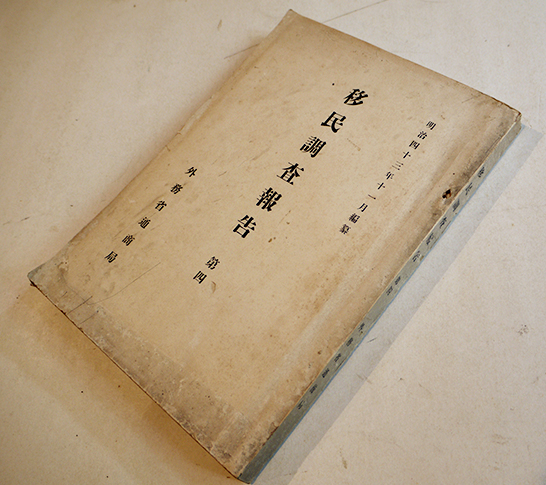 明治四十三年十一月編纂
移民調査報告
第四
外務省通商局